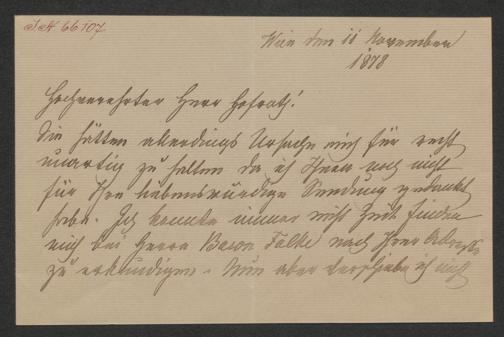 I.N. 66107
Wien den 11 November
1878
Hochverehrter Herr Hofrath!
Sie hätten allerdings Ursache mich für recht
unartig zu halten da ich Ihnen noch nicht
für Ihre liebenswürdige Sendung gedankt
habe. Ich konnte immer nicht Zeit finden
mich bei Herrn Baron Falke nach Ihrer Adresse
zu erkundigen. Nun aber verschiebe ich nicht